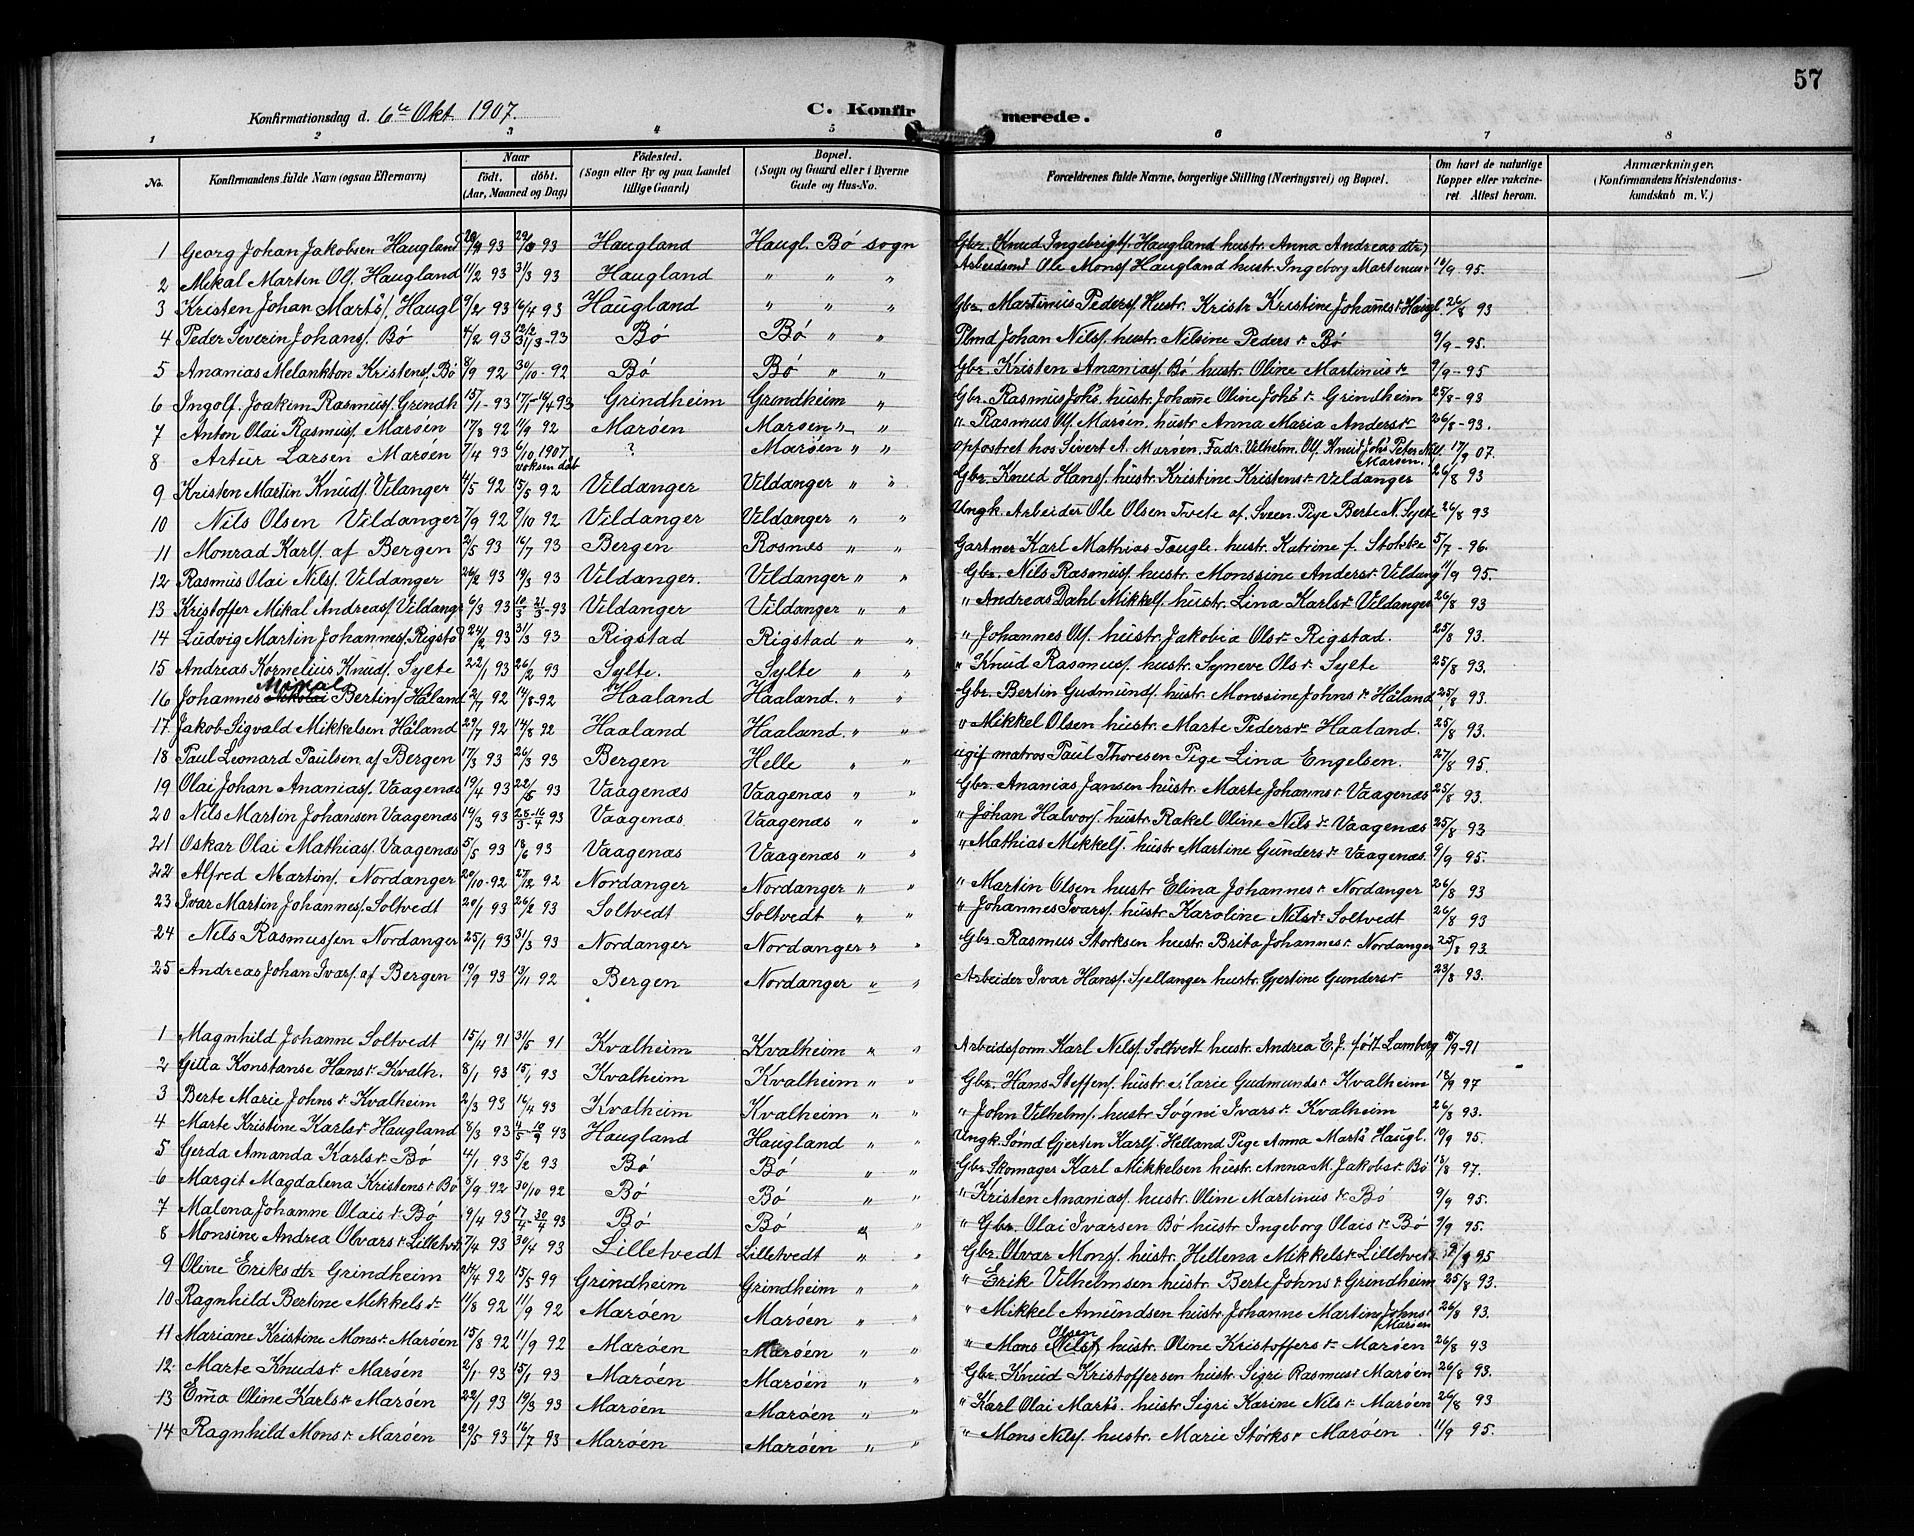 57
Konfirmationsdag d. 6te Okt. 1907. C. Konfirmerede.
1 2 3 4 5 6 7 8
No. Konfirmandens fulde Navn (ogsaa Efternavn) Naar født. døbt. (Aar, Maaned og Dag) Fødested. (Sogn eller By og paa Landet tillige Gaard) Bopæl. (Sogn og Gaard eller i Byerne Gade og Hus-No. Forældrenes fulde Navne, borgerlige Stilling (Næringsvei) og Bopæl. Om havt de naturlige Kopper eller vaccineret Attest herom. Anmærkninger. (Konfirmandens Kristendomskundskab m. V.)
1 Georg Johan Jakobsen Haugland 93 93 Haugland Haugl. Bö sogn Gbr. Knud Ingebrigts. Haugland hustr. Anna Andreas dtr)
2 Mikal Martin Ols. Haugland 11/2 93 31/3 93 Haugland " " " Arbeidsmd Ole Mons. Haugland hustr. Ingeborg Martinusr 10/9 95.
3 Kristen Johan Marts. Haugl 9/2 93 16/4 93 Haugland " " " Gbr. Martinus Peders. Hustr. Kristine Johannesr Haugl. 26/8 93
4 Peder Severin Johans. Bö 4/2 93 12/2 31/3-93 Bö Bö " " Plmd Johan Nils. hustr. Nilsine Peders r. Bö 9/9-95.
5 Ananias Melankton Kristens. Bö 8/9 92 30/10-92 Bö Bö " " Gbr. Kristen Ananias. Bö. hustr. Oline Martinus r 9/9-95
6 Ingolf. Joakim Rasmus. Grindh 15/1-93 17/1-16/4 93 Grindheim Grindheim " Gbr. Rasmus Johs. hustr. Johanne Oline Johs r. Grindheim 25/8-93
7 Anton Olai Rasmus. Maröen 17/8 92 11/9 92 Maröen Maröen " " " Rasmus Ols. Maröen. hustr Anna Maria Anders r 26/8-93.
8 Artur Larsen Maröen 7/4 93 6/10 1907 voksen dåb ? Maröen " " opfostret hos Sivert A. Maröen. Fadr. Vilhelm. Ols. Knud Johs Peter Nils. Maröen. 17/9 07.
9 Kristen Martin Knuds. Vilanger 4/5 92 15/5 92 Vildanger Vildanger " " Gbr. Knud Hans. hustr. Kristine Kristens r. Vildanger 26/8 93
10 Nils Olsen Vildanger 7/9 92 9/10 92 Vildanger Vildanger " " Ungk. Arbeider Ole Olsen Tvete af. Sveen. Pige Berte N. Sylte 26/8 93
11 Monrad Karls. af Bergen 2/5 93 16/7 93 Bergen Rosnes " " Gartner Karl Mathias Taugle. hustr. Katrine f. Stokke 5/7-96.
12 Rasmus Olai Nils. Vildanger 26/2 93 19/3 93 Vildanger. Vildanger " " Gbr. Nils Rasmus. hustr. Monssine Anders r Vildang 11/9 95.
13 Kristoffer Mikal Andreas. Vildange 6/3 93 10/3 21/3-93 Vildanger Vildanger " " " Andreas Dahl Mikkels. hustr. Lina Karls r. Vildanger 26/8 93
14 Ludvig Martin Johannes. Rigstd 24/2 93 31/3 93 Rigstad Rigstad " " " Johannes Ols. hustr. Jakobia Ols r. Rigstad. 25/8 93.
15 Andreas Kornelius Knuds. Sylte 22/1 93 26/2 93 Sylte. Sylte " " " Knud Rasmus. hustr. Syneve Ols r. Sylte 25/8 93.
16 Johannes Mikal Bertins. Håland 2/7 92 14/8-92 Haaland Haaland. " " Gbr. Bertin Gudmunds. hustr. Monssine Johns r. Håland 25/8 93.
17 Jakob Sigvald Mikkelsen Håland 29/7 92 14/8 92 Haaland Haaland. " " " Mikkel Olsen hustr. Marte Peders r. Haaland. 25/8 93.
18 Paul Leonard Paulsen af Bergen 17/3 93 26/3 93 Bergen Helle " " ugif matros Paul Thoresen Pige Lina Engelsen. 27/8 95.
19 Olai Johan Ananias. Vaagenæs 19/4 93 22/5 93 Vaagenæs Vaagenæs " " Gbr. Ananias Jansen hustr. Marte Johanns r. Vaagenæs 25/8 93.
20 Nils Martin Johansen Vaagenæs 19/3 93 25/3-16/4 93 Vaagenæs Vaagenæs " " " Johan Halvors. hustr. Rakel Oline Nils r. Vaagenæs 25/8 93
21 Oskar Olai Mathias. Vaagenæs 5/5 93 18/6 93 Vaagenæs Vaagenæs " " " Mathias Mikkels. hustr Martine Gunders r. Vaagenæs. 9/9 95.
22 Alfred Martins. Nordanger 20/10-92 27/12 92 Nordanger Nordanger " " " Martin Olsen hustr. Elina Johannes r. Nordanger 26/8 93
23 Ivar Martin Johannes. Soltvedt 20/1 93 26/2 93 Soltvedt Soltvedt " " " Johannes Ivars. hustr Karoline Nils r. Soltvedt 26/8 93
24 Nils Rasmussen Nordanger 25/1 93 31/3 93 Nordanger Nordanger " " Gbr. Rasmus Storksen hustr. Brita Johannes r. Nordanger 25/8 93.
25 Andreas Johan Ivars. af Bergen 19/9 93 13/11 92 Bergen Nordanger " " Arbeider Ivar Hans. Sjellanger hustr. Gjertine Gunders r 23/8 93.
1 Magnhild Johanne Soltvedt 15/4 91 31/5 91 Kvalheim Kvalheim " " Arbeidsform Karl Nils. Soltvedt hustr. Andrea E. J. født Lamberg 15/9-91
2 Gitla Konstanse Hans r. Kvalh. 8/1 93 15/1 93 Kvalheim Kvalheim " " Gbr. Hans Steffens. hustr Marie Gudmunds r. Kvalheim 18/9 97
3 Berte Marie Johns r. Kvalheim 2/3 93 16/4 93 Kvalheim Kvalheim " " " John Vilhelms. hustr Sögni Ivars r. Kvalheim 26/8 93.
4 Marte Kristine Karls r. Haugland 8/3 93 4/5 10/9 93 Haugland Haugland " " Ungk. Sömd Gjerten Karls. Helland Pige Anna Marts Haugl. 10/9 95.
5 Gerda Amanda Karls r. Bö 4/1. 93 5/2 93 Bö Bö " " Gbr Skomager Karl Mikkelsen hustr. Anna M. Jakobs r. Bö 18/8 97.
6 Margit Magdalena Kristens r. Bö 8/9 92 30/10 92 Bö Bö " " " Kristen Ananias. hustr. Oline Martinus r. Bö 9/9 95.
7 Malena Johanne Olais r. Bö 9/4 93 17/4-30/4 93 Bö Bö " " " Gbr. Olai Ivarsen Bö hustr Ingeborg Olais r. Bö 9/9 95.
8 Monsine Andrea Olvars r. Lilletvdt 7/4 93 30/4 93 Lilletvedt Lilletvedt " " Gbr. Olvar Mons. hustr. Hellena Mikkels r. Lilletvedt 9/9 95
9 Oline Eriks dtr Grindheim 24/4 92 15/5 99 Grindheim Grindheim " " " Erik Vilhelmsen hustr. Berte Johns r. Grindheim 25/8 93.
10 Ragnhild Bertine Mikkels r 11/8 92 11/9 92 Maröen Maröen " " " Mikkel Amundsen hustr. Johanne Martine Johns r Maröen 26/8 93.
11 Mariane Kristine Mons r. Maröen 15/8 92 11/9 92 Maröen Maröen " " " Mons Olsen (Nils.) hustr. Oline Kristoffers r. Maröen 26/8 93
12 Marte Knuds r. Maröen 2/1 93 15/1 93 Maröen Maröen " " Gbr. Knud Kristoffersen hustr. Sigri Rasmus r Maröen 26/8 93.
13 Emma Oline Karls r. Maröen 22/1 93 19/3 93 Maröen Maröen " " " Karl Olai Marts. hustr Sigri Karine Nils r. Maröen 26/8 93
14 Ragnhild Mons r. Maröen 29/5 93 16/7 93 Maröen Maröen " " " Mons Nils. hustr. Marie Störks r. Maröen 11/9 95.